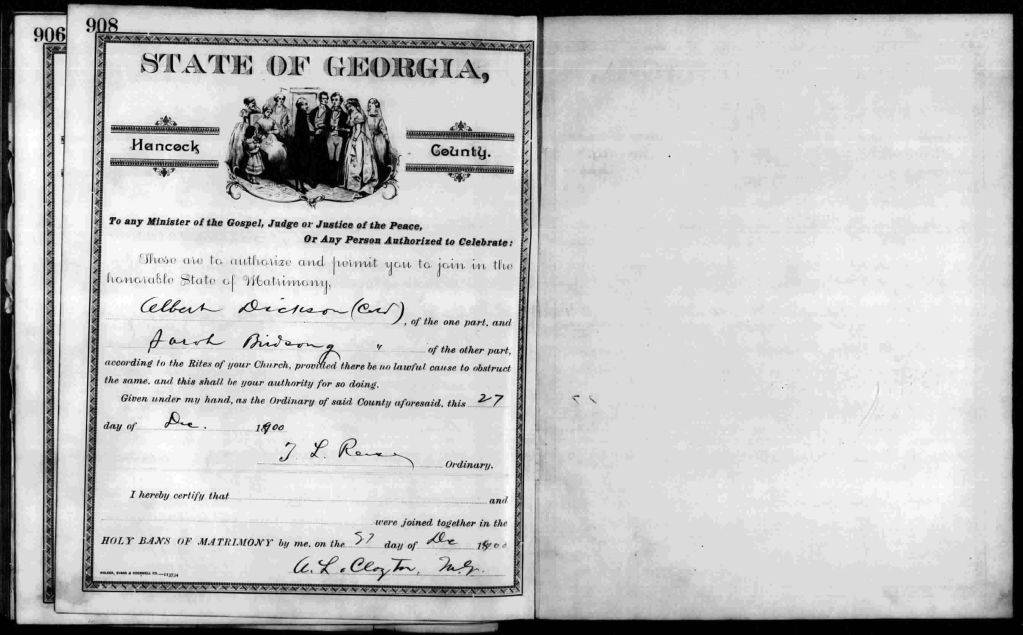 906
908
STATE OF GEORGIA,
Hancock County.
To any Minister of the Gospel, Judge or Justice of the Peace,
Or Any Person Authorized to Celebrate:
These are to authorize and permit you to join in the
honorable State of Matrimony,
Albert Dickson (Cold), of the one part, and
Sarah Birdsong " of the other part,
according to the Rites of your Church, provided there be no lawful cause to obstruct
the same, and this shall be your authority for so doing.
Given under my hand, as the Ordinary of said County aforesaid, this 27
day of Dec. 1900
T. L. Reese Ordinary.
I hereby certify that and
were joined together in the
HOLY BANS OF MATRIMONY by me, on the day of Dec 1900
A. L. Clayton, M.G.